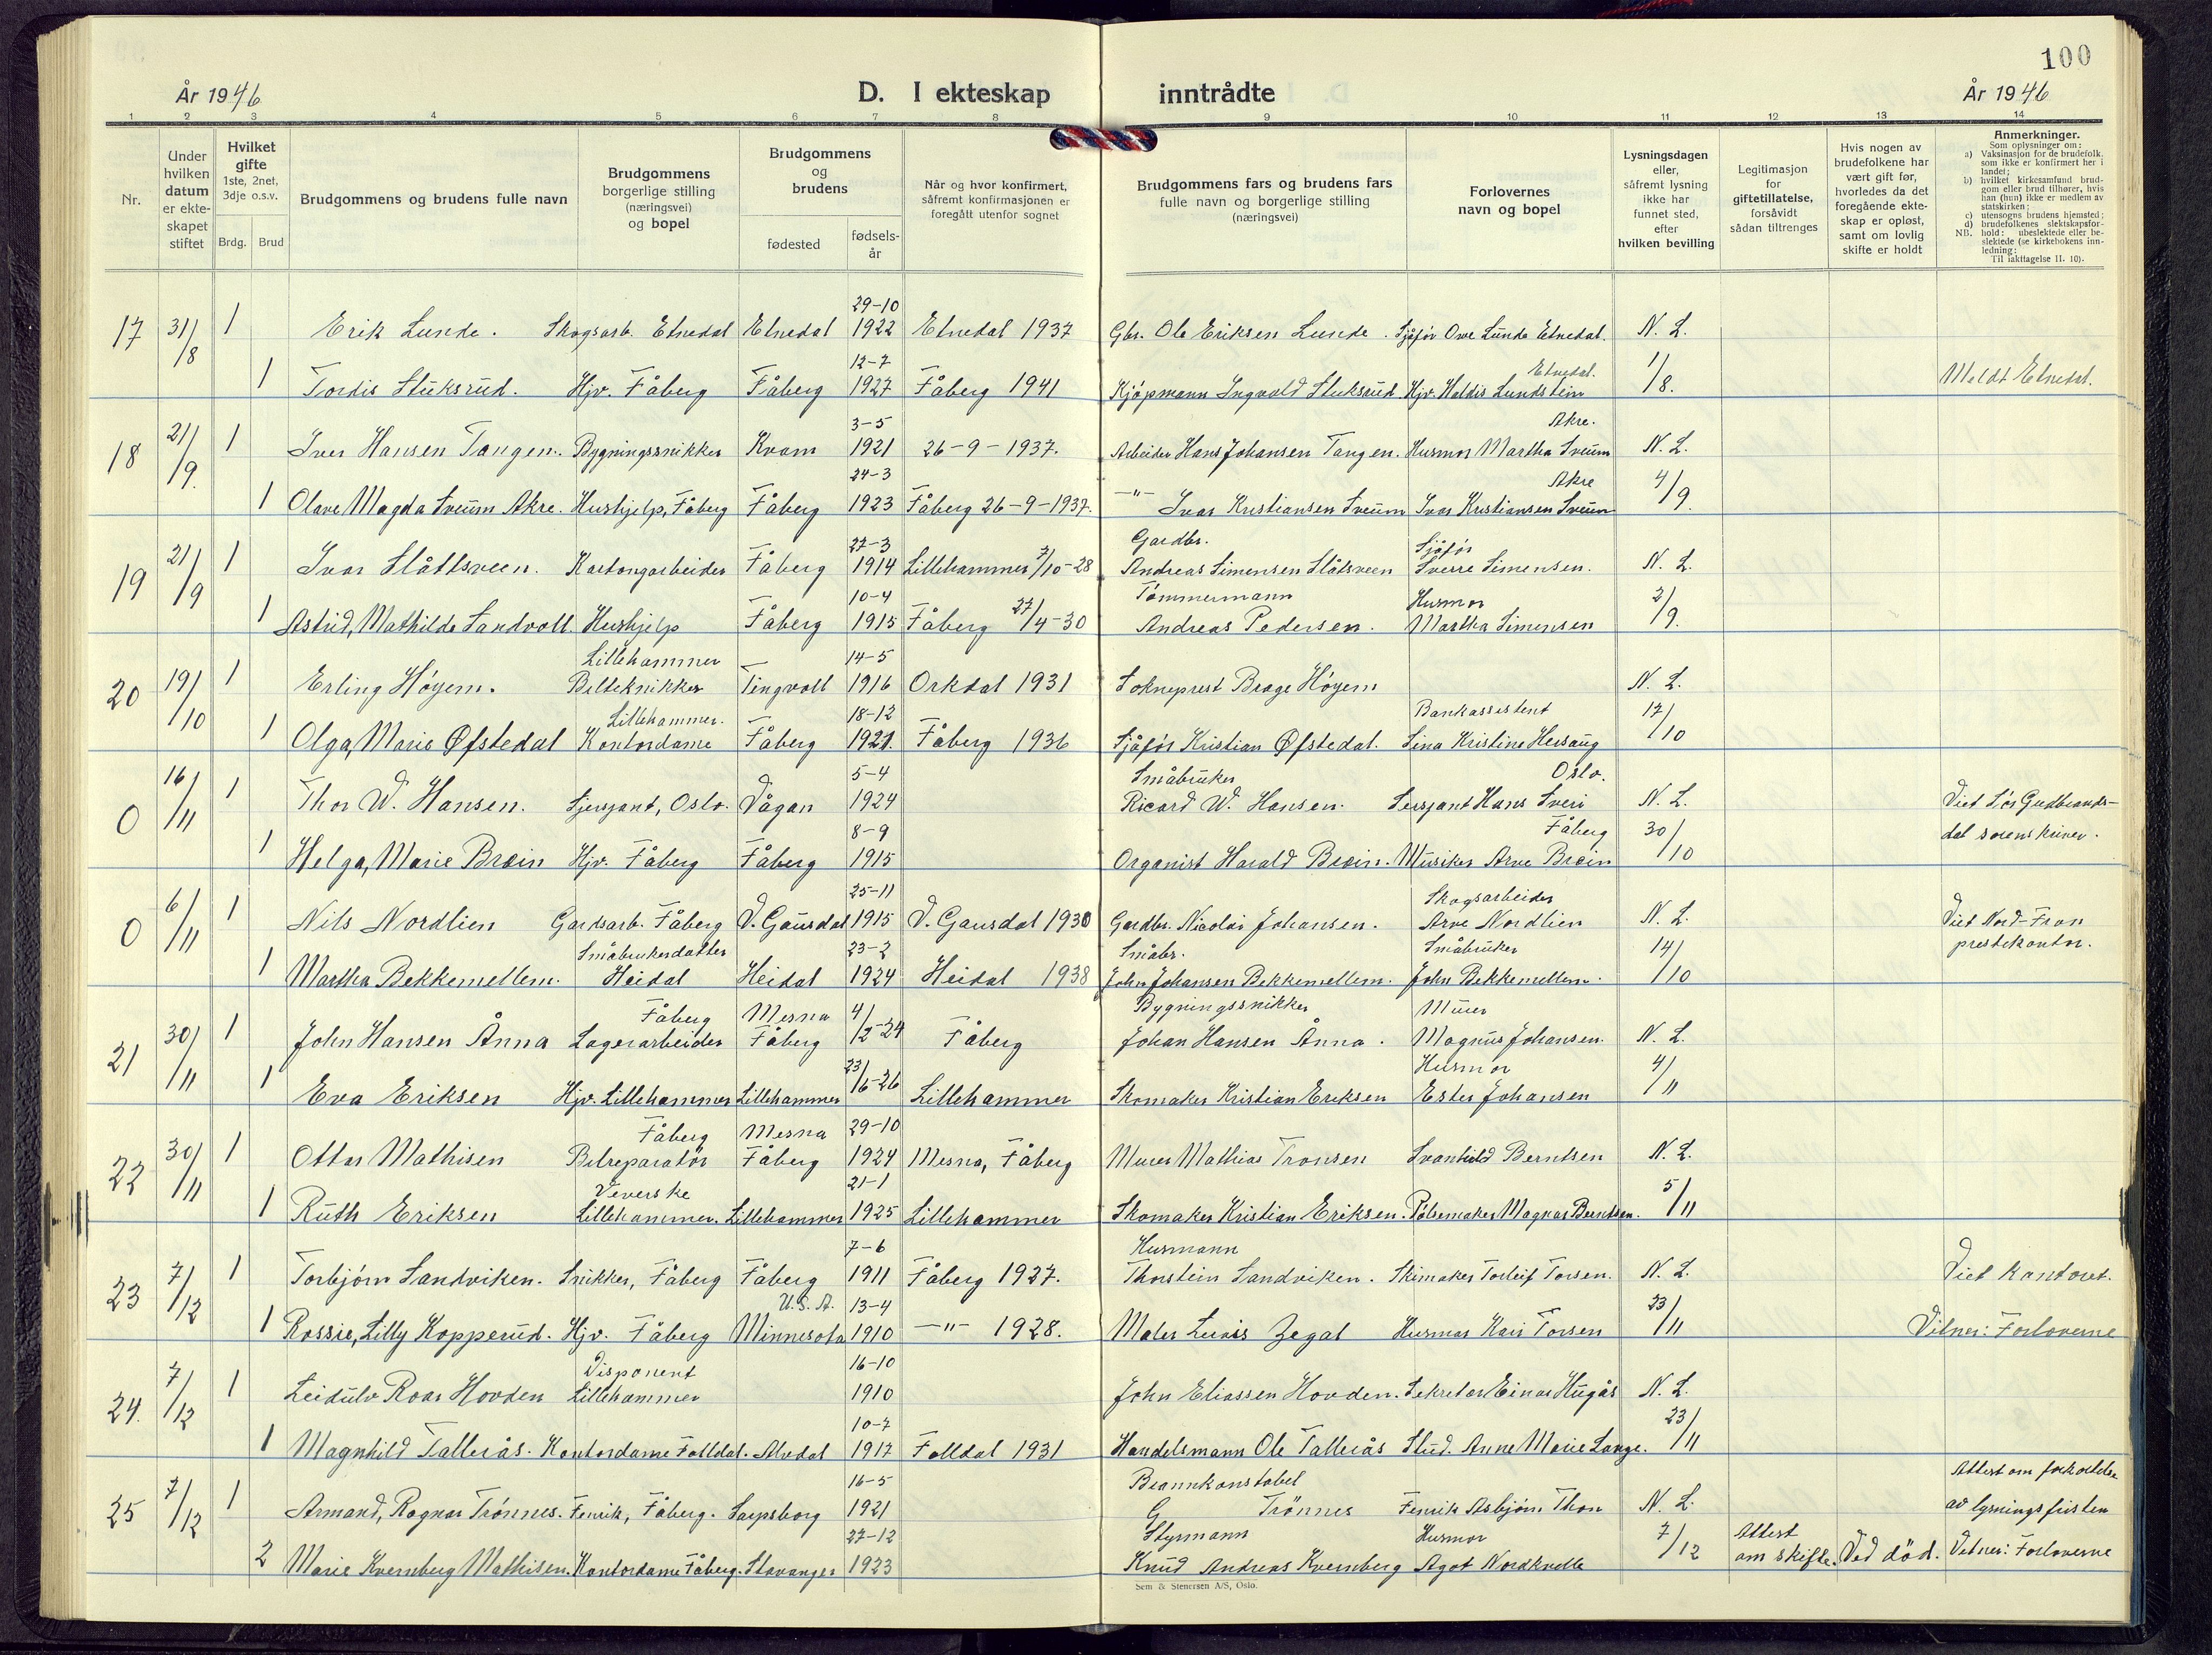 100
År 1946 D. I ekteskap inntrådte År 1946
1 2 3 4 5 6 7 8 9 10 11 12 13 14
Nr.
Under hvilken datum er ekteskapet stiftet
Hvilket gifte 1ste, 2net, 3dje o.s.v.
Brdg. Brud
Brudgommens og brudens fulle navn
Brudgommens borgerlige stilling (næringsvei) og bopel
Brudgommens og brudens
fødested
fødselsår
Når og hvor konfirmert, såfremt konfirmasjonen er foregått utenfor sognet
Brudgommens fars og brudens fars fulle navn og borgerlige stilling (næringsvei)
Forlovernes navn og bopel
Lysningsdagen eller, såfremt lysning ikke har funnet sted, efter hvilken bevilling
Legitimasjon for giftetillatelse, forsåvidt sådan tiltrenges
Hvis nogen av brudefolkene har vært gift før, hvorledes da det foregående ekteskap er opløst, samt om lovlig skifte er holdt
Anmerkninger.
Som oplysninger om:
a) Vaksinasjon for de brudefolk, som ikke er konfirmert her i landet;
b) hvilket kirkesamfund brudgom eller brud tilhører, hvis han (hun) ikke er medlem av statskirken;
c) utensogns brudens hjemsted;
d) brudefolkenes slektskapsforhold: ubeslektede eller beslektede (se kirkebokens innledning:
NB. Til iakttagelse II. 10).
17 31/8 1 Erik Lunde. Skogsarb. Etnedal Etnedal 29-10 1922 Etnedal 1937 Gbr. Ole Eriksen Lunde. Sjåfør Ove Lunde Etnedal. N. L.
1 Tordis Stuksrud. Hjv. Fåberg Fåberg 12-7 1927 Fåberg 1941 Kjøpmann Ingvald Stuksrud Hjv. Haldis Lundstein Etnedal. 1/8. Meldt Etnedal.
18 21/9. 1 Iver Hansen Tangen. Bygningssnikker Kvam 3-5 1921 26-9-1937. Arbeider Hans Johansen Tangen. Husmor Martha Sveum Akre. N. L.
1 Olave Magda Sveum Akre. Hushjelp, Fåberg Fåberg 24-3 1923 Fåberg 26-9-1937. -"- Ivar Kristiansen Sveum Ivar Kristiansen Sveum Akre 4/9.
19 21/9 1 Ivar Slåttsveen. Kartongarbeider Fåberg 27-3 1914 Lillehammer 7/10-28 Gardbr. Andreas Simensen Slåtsveen Sjåfør Sverre Simensen. N. L.
1 Astrid, Mathilde Sandvoll. Hushjelp Fåberg 10-4 1915 Fåberg 27/4-30 Tømmermann Andreas Pedersen. Husmor Martha Simensen 2/9.
20 19/10 1 Erling Høyem. Lillehammer Biltekniker Tingvoll 14-5 1916 Orkdal 1931 Sokneprest Brage Høyem N. L.
1 Olga, Marie Øfstedal Lillehammer. Kontordame Fåberg 18-12 1921. Fåberg 1936 Sjåfør Kristian Øfstedal. Bankassistent Sina Kristine Hersaug 17/10
0 16/11 1 Thor W. Hansen. Sjersjant, Oslo. Vågan 5-4 1924 Småbruker Ricard W. Hansen. Sersjant Hans Sveri Oslo. N. L. Viet Sør Gudbrands-
1 Helga, Marie Bræin Hjv. Fåberg Fåberg 8-9 1915 Organist Harald Bræin. Musiker Arve Bræin Fåberg 30/10 dal sorenskriver.
0 6/11 1 Nils Nordlien Gardsarb. Fåberg V. Gausdal 25-11 1915 V. Gausdal 1930 Gardbr. Nicolai Johansen. Skogsarbeider Arne Nordlien N. L. Viet Nord-Fron
1 Martha Bekkemellem. Småbrukerdatter Heidal Heidal 23-2 1924 Heidal 1938 Småbr. John Johansen Bekkemellem. Småbruker John Bekkemellem. 14/10 prestekontor.
21 30/11 1 John Hansen Ånna Fåberg Lagerarbeider Mesna Fåberg 4/2-24 Fåberg Bygningssnikker Johan Hansen Ånna. Murer Magnus Johansen. N. L.
1 Eva Eriksen Hjv. Lillehammer Lillehammer 23/6-26 Lillehammer Skomaker Kristian Eriksen Husmor Ester Johansen 4/11
22 30/11 1 Ottar Mathisen Fåberg Bilreparatør Mesna Fåberg 29-10 1924 Mesna, Fåberg Murer Mathias Tronsen Svanhild Berntsen N. L.
1 Ruth Eriksen Veverske Lillehammer. Lillehammer 21-1 1925 Lillehammer Skomaker Kristian Eriksen. Pølsemaker Magnar Berntsen. 5/11
23 7/12 1 Torbjørn Sandviken. Snikker, Fåberg Fåberg 7-6 1911 Fåberg 1927. Husmann Thorstein Sandviken. Skimaker Torleif Torsen. N. L. Viet kontoret.
1 Rossie, Lilly Kopperud. Hjv. Fåberg U.S.A. Minnesota 13-4 1910 -"- 1928. Maler Luvis Zegal Husmor Kari Torsen 23/11 Vitner: Forloverne
24. 7/12 1 Leidulv Roar Hovden Disponent Lillehammer 16-10 1910 John Eliassen Hovden. Sekretær Einar Hugås N. L.
1 Magnhild Tallerås. Kontordame Folldal. Alvdal 10-7 1917 Folldal 1931 Handelsmann Ole Tallerås Stud. Anne Marie Lange. 23/11
25 7/12 1 Armand, Ragnar Trønnes. Fenrik, Fåberg. Sarpsborg 16-5 1921 Brannkonstabel G Trönnes Fenrik Asbjørn Thon N. L. Attest om forkortelse av lysningsfristen
2 Marie Kvernberg Mathisen. Kontordame Fåberg. Stavanger 27-12 1923 Styrmann Knud Andreas Kvernberg Husmor Agot Nordkvelle 7/12 Attest om skifte. Ved död. Vitner: Forloverne
Sem & Stenersen A/S, Oslo.